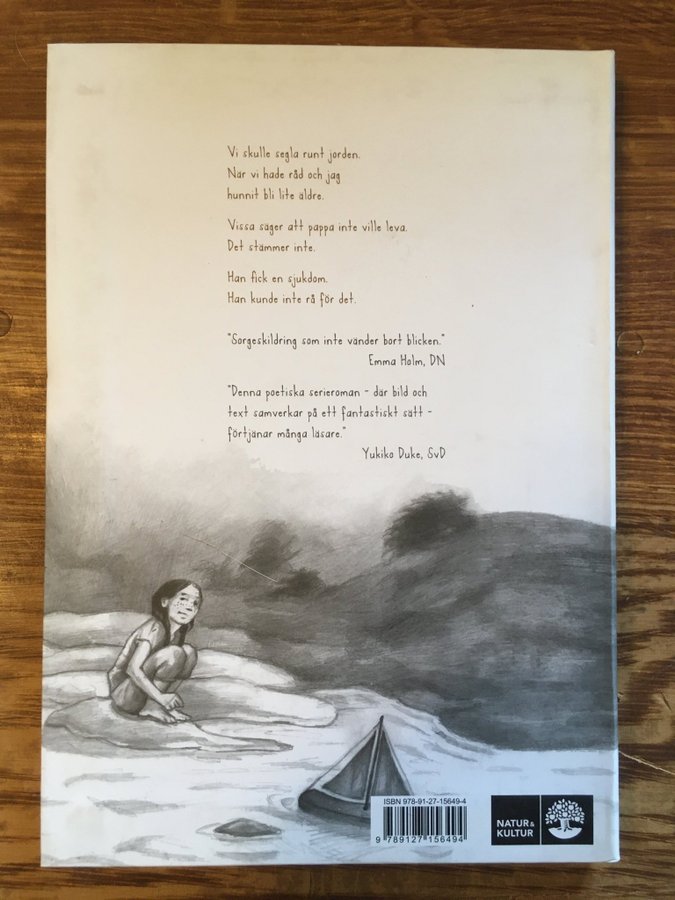 Vi skulle segla runt jorden.
När vi hade råd och jag
hunnit bli lite äldre.
Vissa säger att pappa inte ville leva.
Det stämmer inte.
Han fick en sjukdom.
Han kunde inte rå för det.
"Sorgeskildring som inte vänder bort blicken."
Emma Holm, DN
"Denna poetiska serieroman - där bild och
text samverkar på ett fantastiskt sätt -
förtjänar många läsare."
Yukiko Duke, SvD
ISBN 978-91-27-15649-4
9 789127 156494
NATUR &
KULTUR